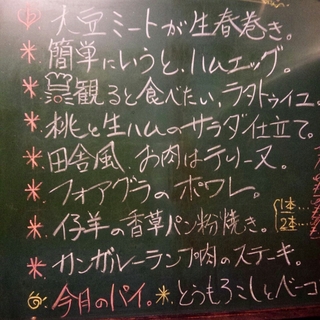 大豆ミートが生春巻き。
簡単にいうと、ハムエッグ。
観ると食べたい、ラタトゥイユ。
桃と生ハムのサラダ仕立て。
田舎風、お肉はテリーヌ。
フォアグラのポワレ。
仔羊の香草パン粉焼き。 1本… 2本…
カンガルーランプ肉のステーキ。
今月のパイ。*とうもろこしとベーコ